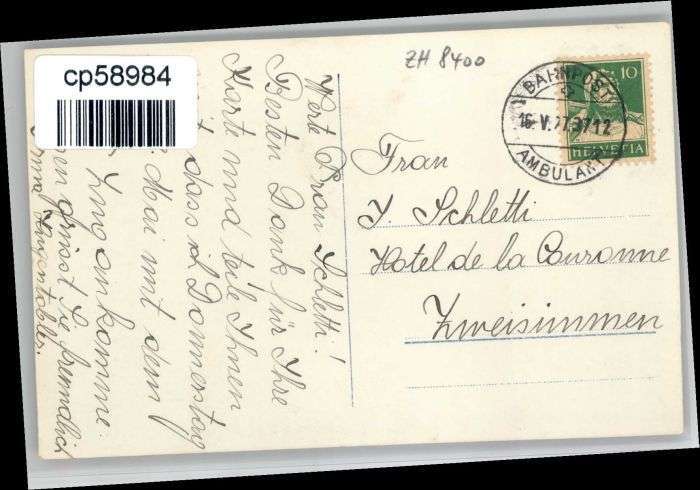 ZH 8400
cp58984
BAHNPOST
16.V.27.3712
AMBULANT
10
HELVETIA
Werte Frau Schletti!
Besten Dank für Ihre
Karte und teile Ihnen
dass ich Donnerstag
Mai mit dem
Zug ankomme.
grüsst Sie freundlich
Frau
J. Schletti
Hotel de la Couronne
Zweisimmen